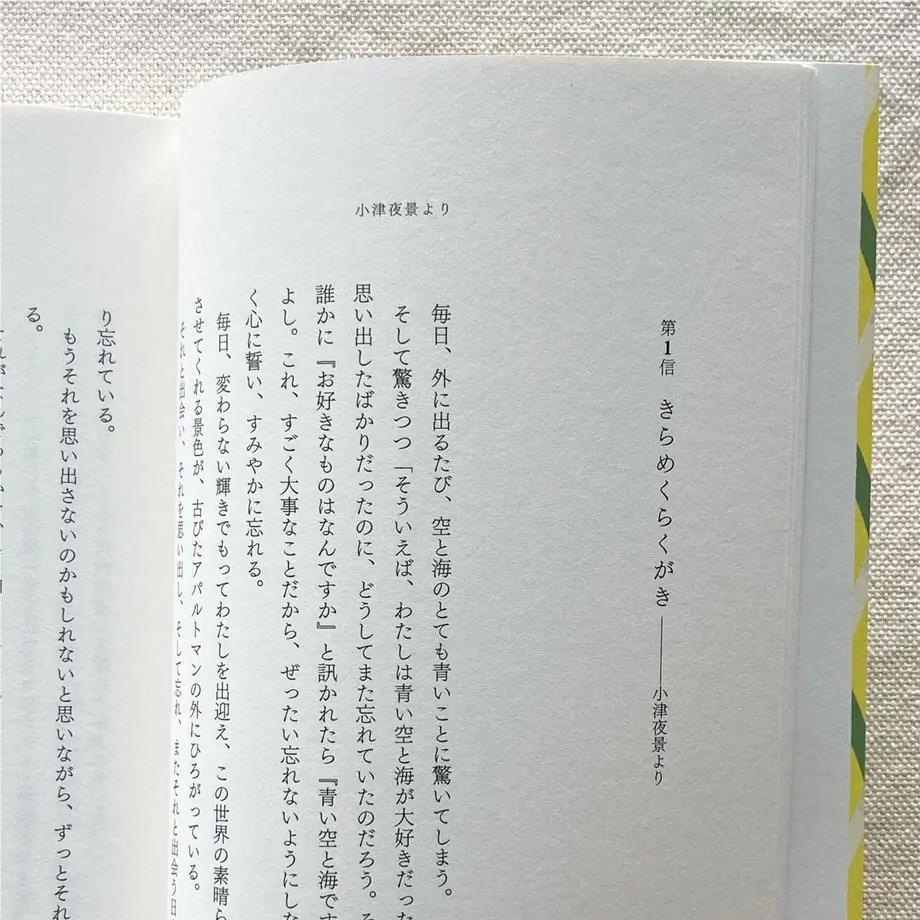 小津夜景より
第1信 きらめくらくがき ――― 小津夜景より
毎日、外に出るたび、空と海のとても青いことに驚いてしまう。
そして驚きつつ「そういえば、わたしは青い空と海が大好きだった
思い出したばかりだったのに、どうしてまた忘れていたのだろう。そ
誰かに『お好きなものはなんですか』と訊かれたら『青い空と海です
よし。これ、すごく大事なことだから、ぜったい忘れないようにしな
く心に誓い、すみやかに忘れる。
毎日、変わらない輝きでもってわたしを出迎え、この世界の素晴ら
させてくれる景色が、古びたアパルトマンの外にひろがっている。
それと出会い、それを思い出し、そして忘れ、またそれと出会う日
り忘れている。
もうそれを思い出さないのかもしれないと思いながら、ずっとそれ
る。